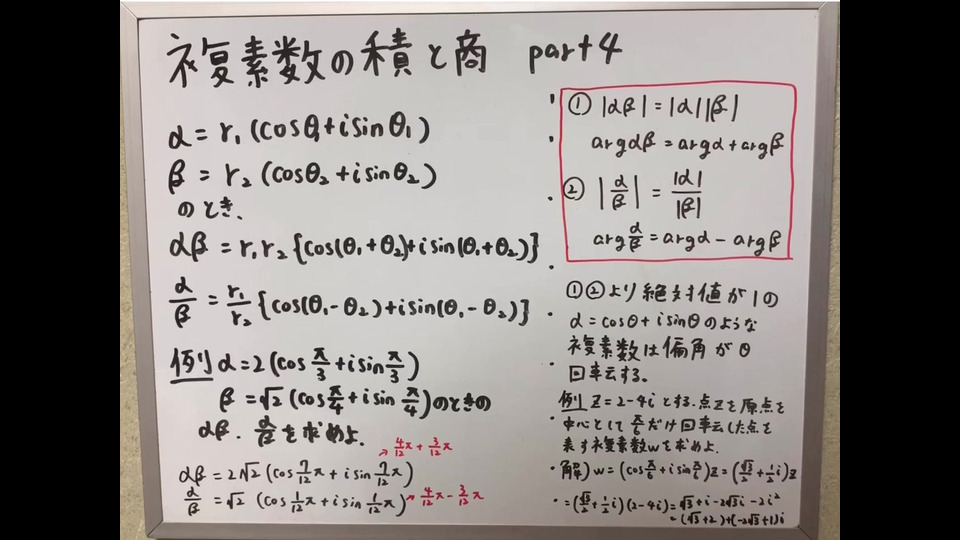 複素数の積と商 part4
α = r₁ (cosθ₁+i sinθ₁)
β = r₂ (cosθ₂+i sinθ₂)
のとき、
αβ = r₁r₂ {cos(θ₁+θ₂)+i sin(θ₁+θ₂)}
α/β = r₁/r₂ {cos(θ₁-θ₂)+i sin(θ₁-θ₂)}
例) α=2 (cos π/3 + i sin π/3)
β=√2 (cos π/4 + i sin π/4) のときの
αβ . α/β を求めよ.
→ 4/12π + 3/12π
αβ = 2√2 (cos 7/12π + i sin 7/12π)
α/β = √2 (cos 1/12π + i sin 1/12π) → 4/12π - 3/12π
① |αβ| = |α||β|
argαβ = argα + argβ
② |α/β| = |α|/|β|
arg α/β = argα - argβ
①②より絶対値が1の
α=cosθ+i sinθのような
複素数は偏角がθ
回転する。
例 Z=2-4i とする.点Zを原点を
中心として π/6 だけ回転した点を
表す複素数wを求めよ.
解) w=(cos π/6 + i sin π/6)z=(√3/2 + 1/2 i)z
=(√3/2 + 1/2 i)(2-4i)=√3+i-2√3i-2i²
=(√3+2)+(-2√3+1)i